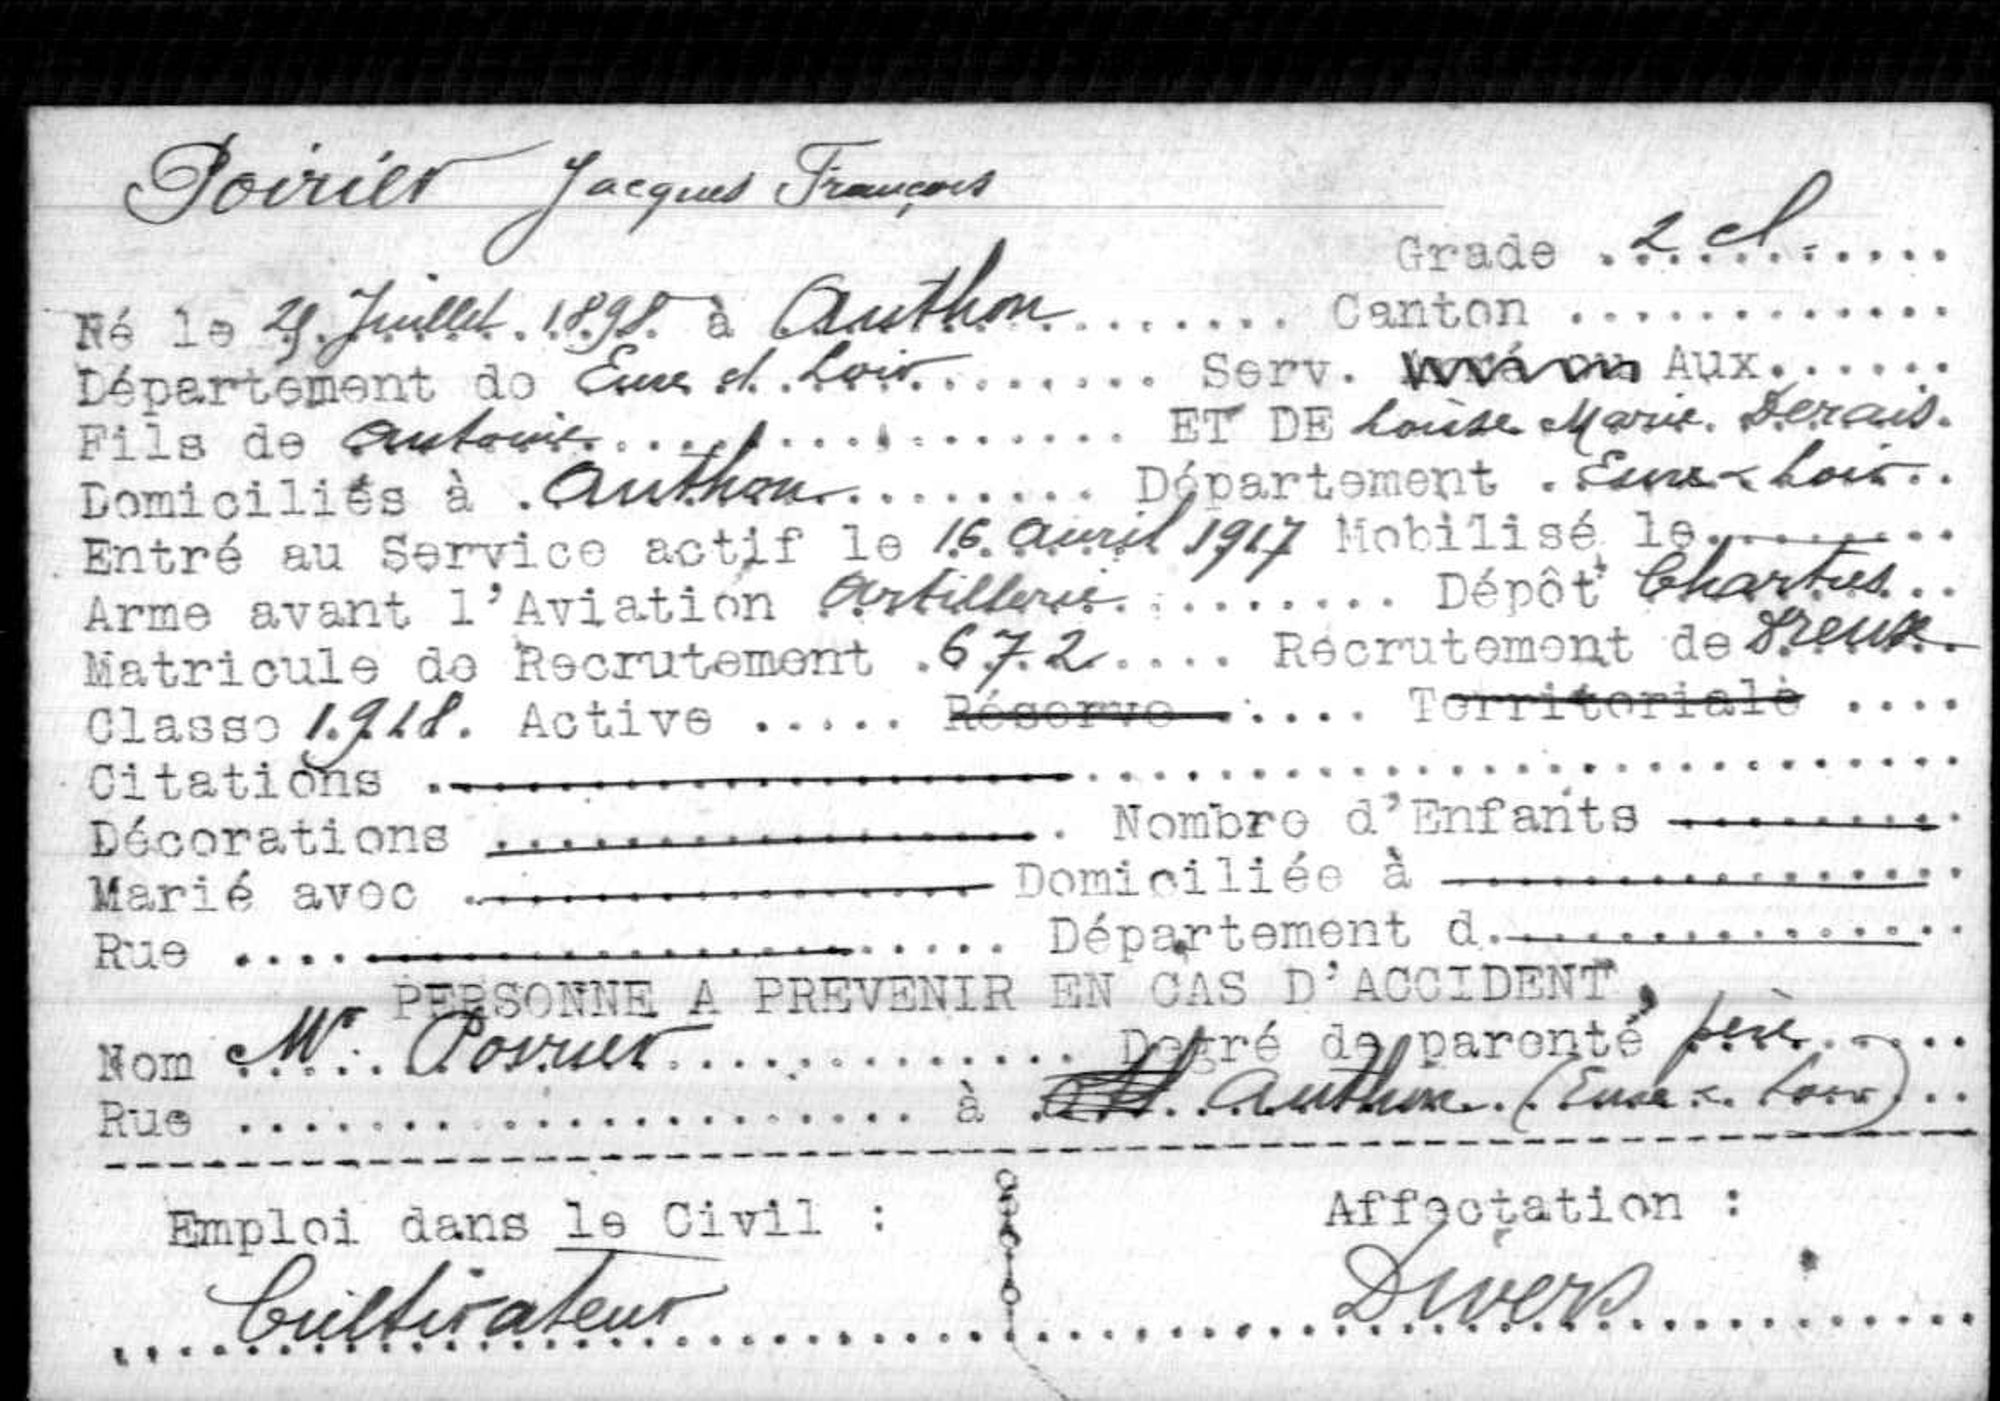 Poirier Jacques François
Grade 2 cl.
Né le Juillet 1898 à Authon Canton
Département de Eure et Loir Serv. Aux.
Fils de Antoine ET DE Louise Marie Derais.
Domiciliés à Authon Département Eure & Loir
Entré au Service actif le 16 Avril 1917 Mobilisé le
Arme avant l'Aviation Artillerie Dépôt Chartres
Matricule de Recrutement 672 Recrutement de Dreux
Classe 1918. Active Réserve Territoriale
Citations
Décorations Nombre d'Enfants
Marié avec Domiciliée à
Rue Département d.
PERSONNE A PREVENIR EN CAS D'ACCIDENT
Nom Mr Poirier Degré de parenté père
Rue à Authon (Eure & Loir)
Emploi dans le Civil : Affectation :
Cultivateur Divers